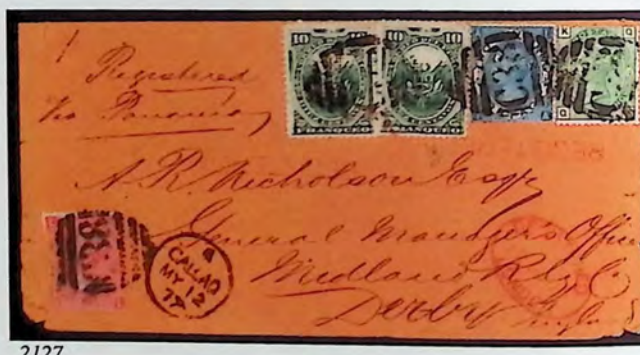 10 10 10 10
FRANQUEO FRANQUEO
C38 C38
K Q
Q K
Registered
Via Panama
REGISTERED
A. R. Nicholson Esqr
General Manager's Office
Midland Rly Co
Derby
C38
CALLAO
MY 12
2127